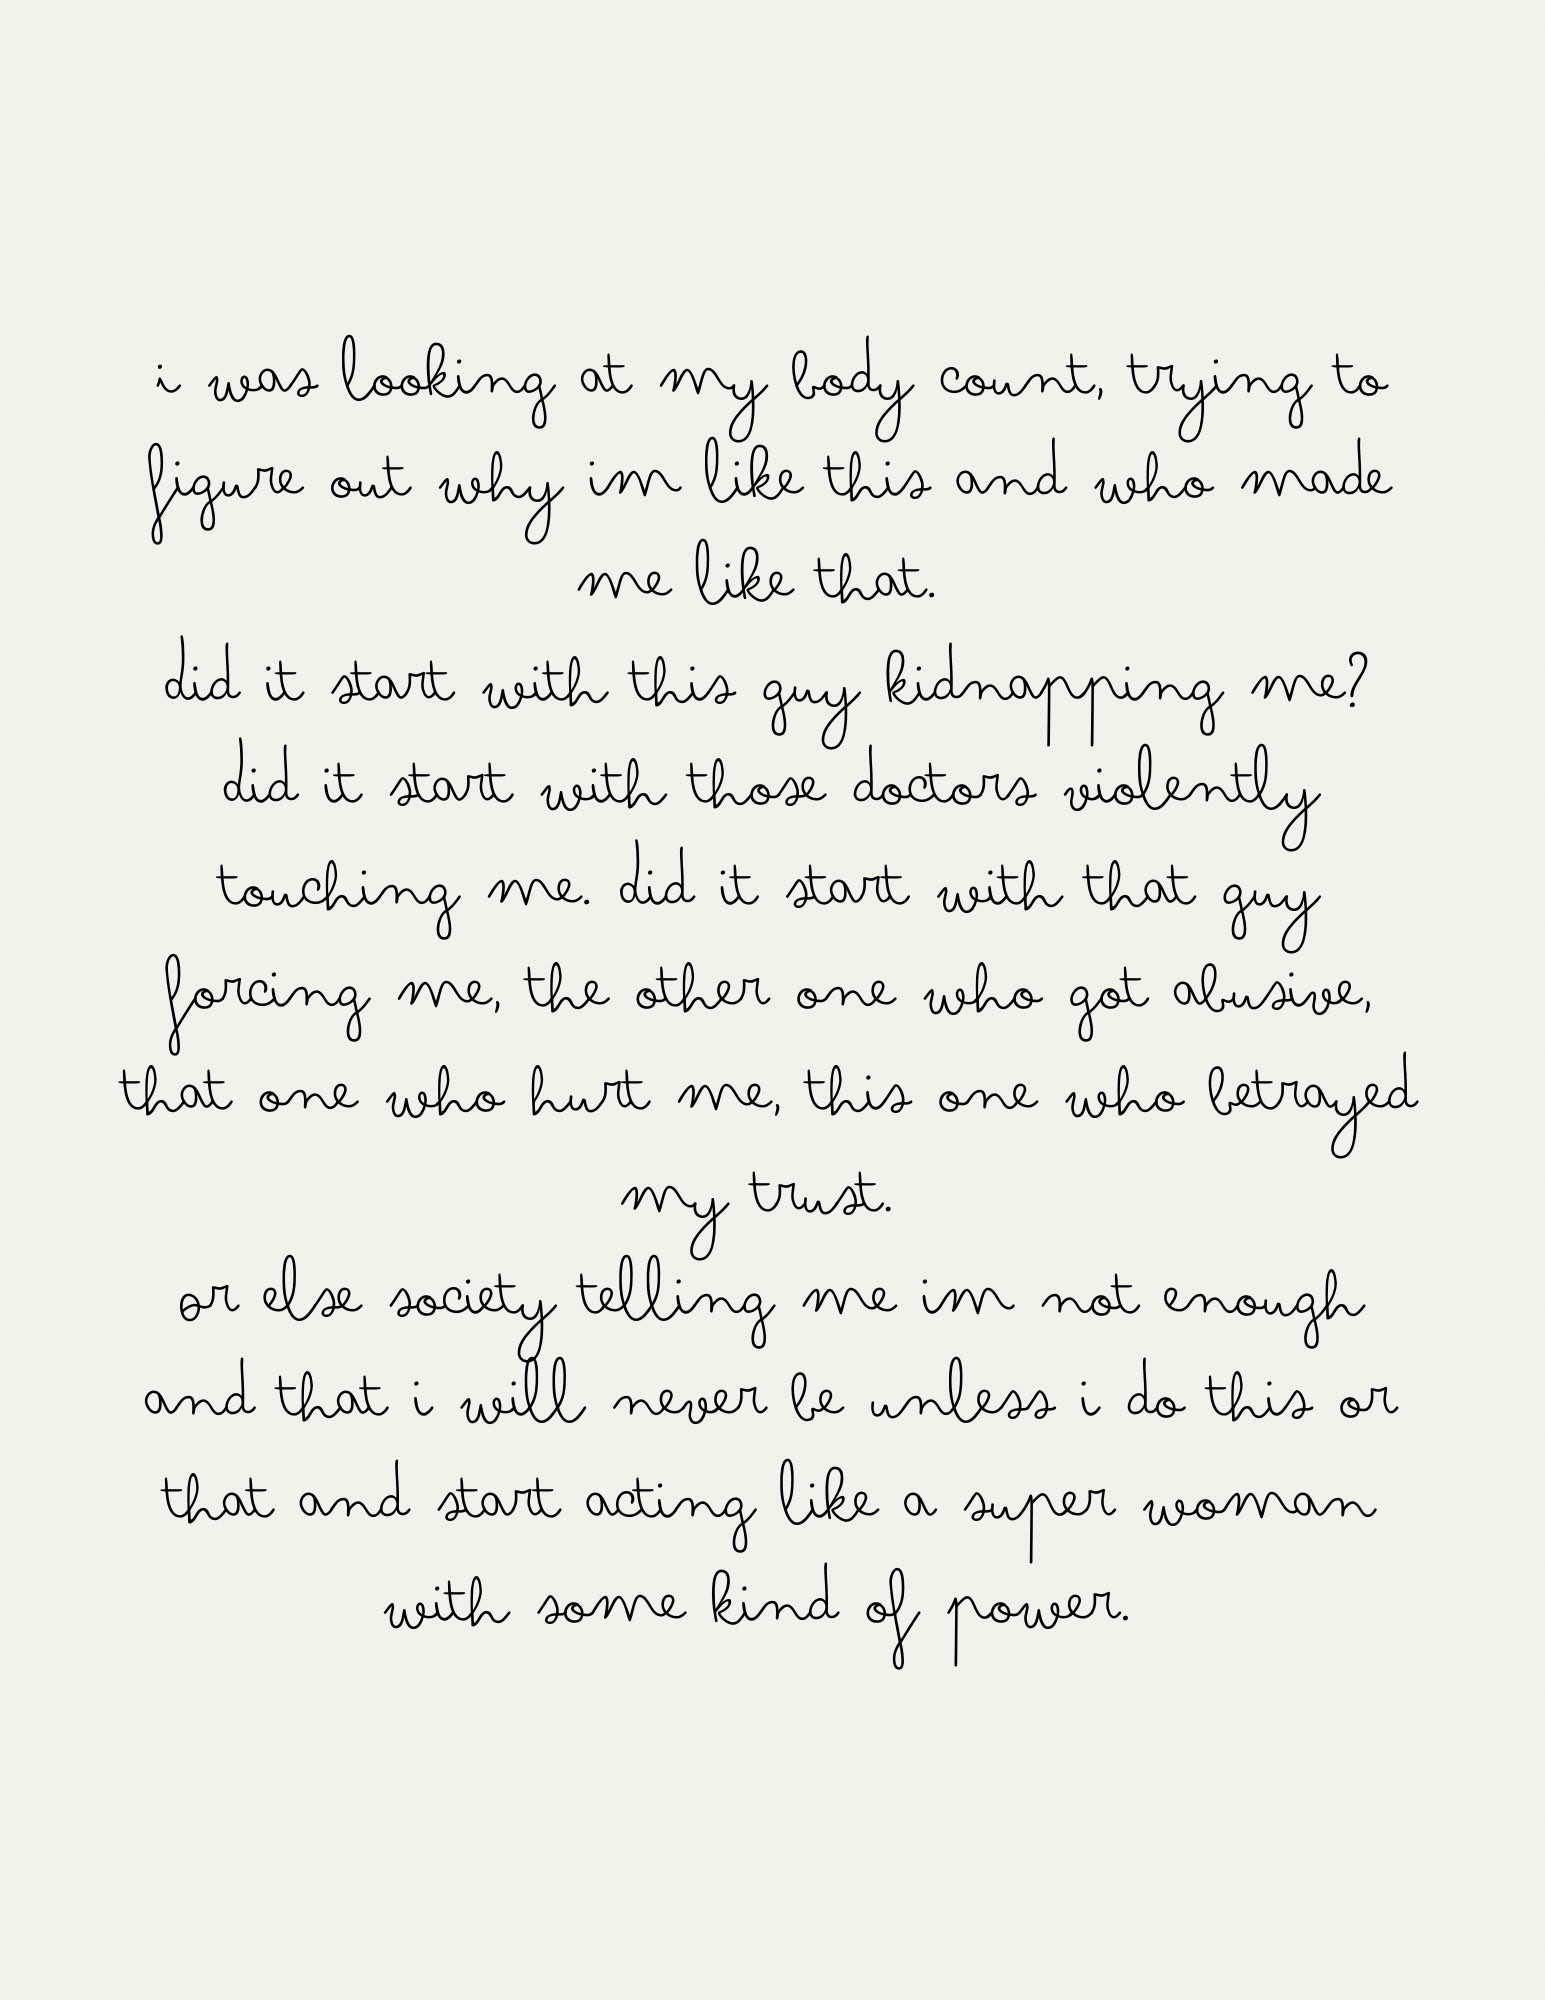 i was looking at my body count, trying to
figure out why im like this and who made
me like that.
did it start with this guy kidnapping me?
did it start with those doctors violently
touching me. did it start with that guy
forcing me, the other one who got abusive,
that one who hurt me, this one who betrayed
my trust.
or else society telling me im not enough
and that i will never be unless i do this or
that and start acting like a super woman
with some kind of power.